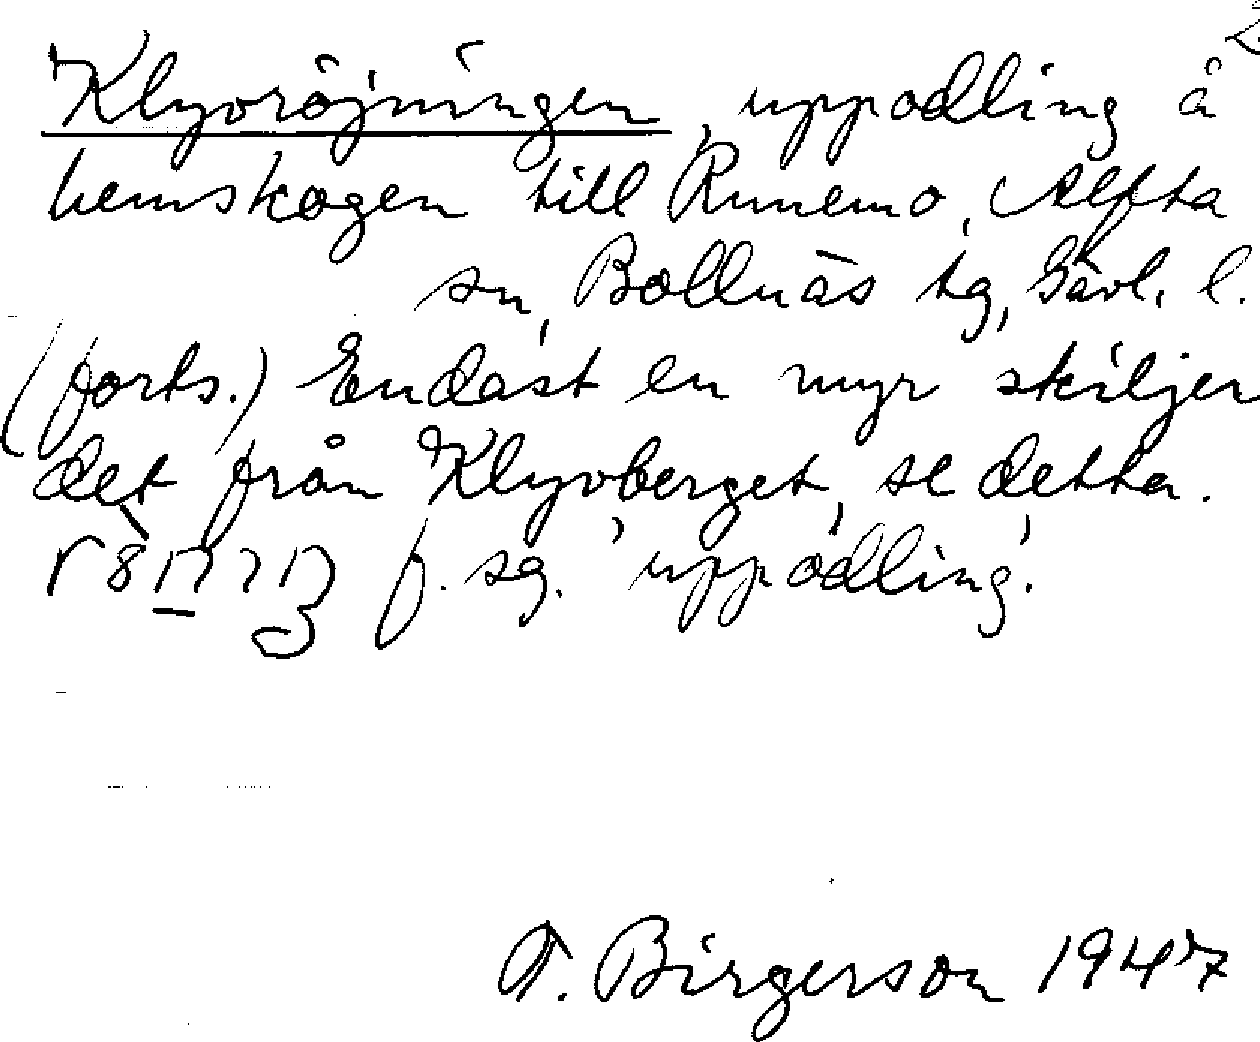 2
Klyvröjningen, uppodling å
hemskogen till Runemo, Alfta
sn, Bollnäs tg, Gävl. l.
(forts.) Endast en myr skiljer
det från Klyvberget, se detta.
f. sg. 'uppodling'.
T. Birgerson 1947